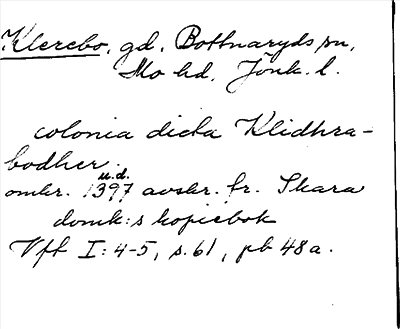 Klerebo, gd, Bottnaryds sn,
Mo hd, Jönk. l.
colonia dicta Klidhra-
bodher.
u.d.
omkr. 1397 avskr. fr. Skara
domk:s kopiebok
Vft I: 4-5, s. 61, pb 48a.